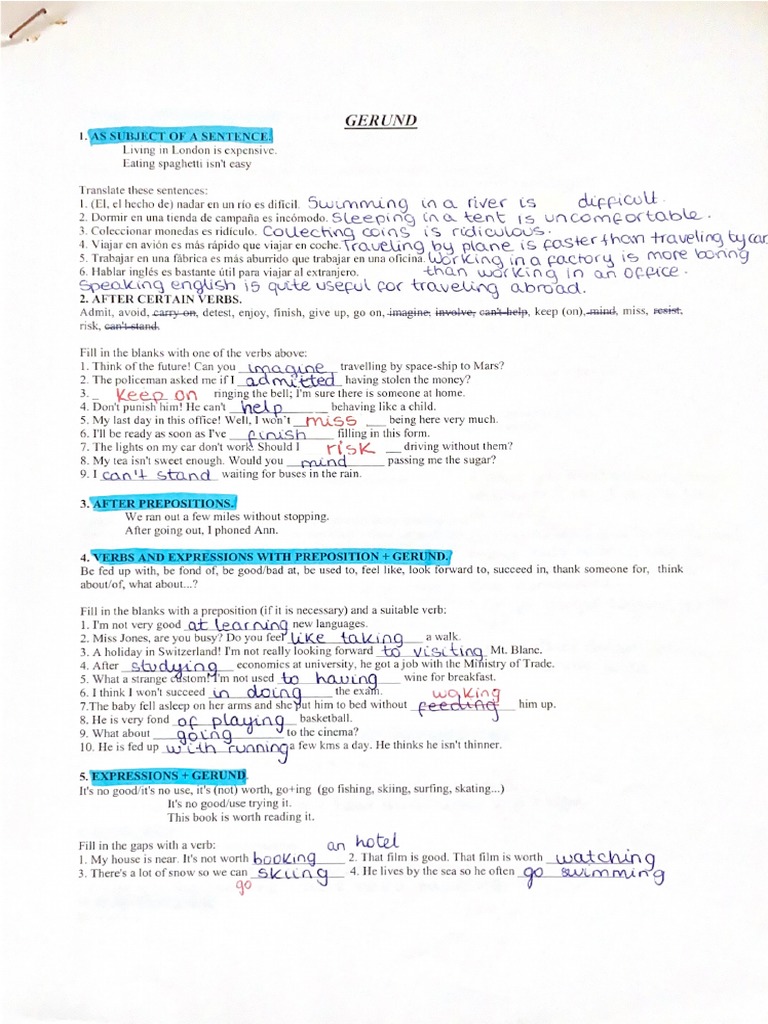 GERUND
1. AS SUBJECT OF A SENTENCE.
Living in London is expensive.
Eating spaghetti isn't easy
Translate these sentences:
1. (El, el hecho de) nadar en un río es difícil. Swimming in a river is difficult.
2. Dormir en una tienda de campaña es incómodo. Sleeping in a tent is uncomfortable.
3. Coleccionar monedas es ridículo. Collecting coins is ridiculous.
4. Viajar en avión es más rápido que viajar en coche. Traveling by plane is faster than traveling by car
5. Trabajar en una fábrica es más aburrido que trabajar en una oficina. Working in a factory is more boring
6. Hablar inglés es bastante útil para viajar al extranjero. than working in an office.
Speaking english is quite useful for traveling abroad.
2. AFTER CERTAIN VERBS.
Admit, avoid, carry on, detest, enjoy, finish, give up, go on, imagine, involve, can't help, keep (on), mind, miss, resist,
risk, can't stand.
Fill in the blanks with one of the verbs above:
1. Think of the future! Can you imagine travelling by space-ship to Mars?
2. The policeman asked me if I admitted having stolen the money?
3. _ keep on ringing the bell; I'm sure there is someone at home.
4. Don't punish him! He can't help behaving like a child.
5. My last day in this office! Well, I won't miss being here very much.
6. I'll be ready as soon as I've finish filling in this form.
7. The lights on my car don't work. Should I risk driving without them?
8. My tea isn't sweet enough. Would you mind passing me the sugar?
9. I can't stand waiting for buses in the rain.
3. AFTER PREPOSITIONS.
We ran out a few miles without stopping.
After going out, I phoned Ann.
4. VERBS AND EXPRESSIONS WITH PREPOSITION + GERUND.
Be fed up with, be fond of, be good/bad at, be used to, feel like, look forward to, succeed in, thank someone for, think
about/of, what about...?
Fill in the blanks with a preposition (if it is necessary) and a suitable verb:
1. I'm not very good at learning new languages.
2. Miss Jones, are you busy? Do you feel like taking a walk.
3. A holiday in Switzerland! I'm not really looking forward to visiting Mt. Blanc.
4. After studying economics at university, he got a job with the Ministry of Trade.
5. What a strange custom! I'm not used to having wine for breakfast.
6. I think I won't succeed in doing the exam. waking
7.The baby fell asleep on her arms and she put him to bed without feeding him up.
8. He is very fond of playing basketball.
9. What about going to the cinema?
10. He is fed up with running a few kms a day. He thinks he isn't thinner.
5. EXPRESSIONS + GERUND.
It's no good/it's no use, it's (not) worth, go+ing (go fishing, skiing, surfing, skating...)
It's no good/use trying it.
This book is worth reading it.
Fill in the gaps with a verb: an hotel
1. My house is near. It's not worth booking 2. That film is good. That film is worth watching
3. There's a lot of snow so we can skiing 4. He lives by the sea so he often go swimming
go